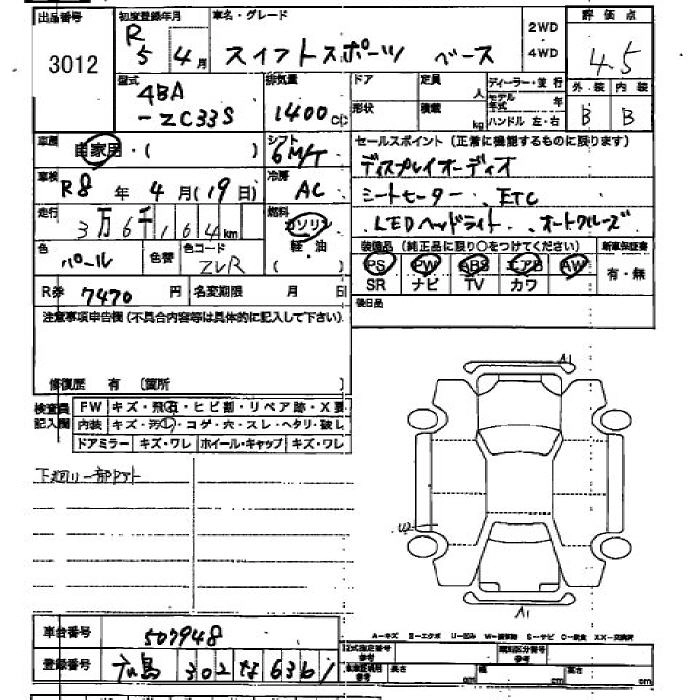 出品番号 初度登録年月 車名・グレード 2WD 4WD 評価点
3012 R5 4月 スイフトスポーツ ベース 4.5
型式 排気量 ドア 定員 人 ディーラー・並行 外装 内装
4BA -ZC33S 1400cc 形状 積載 kg モデル年式 年 ハンドル 左・右 B B
車歴 自家用・( ) シフト 6M/T セールスポイント(正常に機能するものに限ります)
ディスプレイオーディオ
車検 R8年4月(19日) 冷房 AC シートヒーター、ETC
走行 3万6千164km 燃料 ガソリン 軽・油 ( ) LEDヘッドライト、オートクルーズ
色 パール 色替 色コード ZVR 装備品(純正品に限り○をつけてください) 新車保証書
PS PW ABS エアB AW 有・無
SR ナビ TV カワ
R券 7470円 名変期限 月 日 後日品
注意事項申告欄(不具合内容等は具体的に記入して下さい)
修復歴 有 〔箇所 〕
検査員記入欄 FW キズ・飛石・ヒビ割・リペア跡・X要
内装 キズ・汚・コゲ・穴・スレ・ヘタリ・破レ
ドアミラー キズ・ワレ ホイール・キャップ キズ・ワレ
下廻り一部
A1
U2
A1
A-キズ E-エクボ U-凹み W-補修跡 S-サビ C-腐食 XX-交換済
車台番号 507948
登録番号 広島 302 な 6361
型式指定番号 参考 類別区分番号 参考
長さ cm 幅 cm 高さ cm